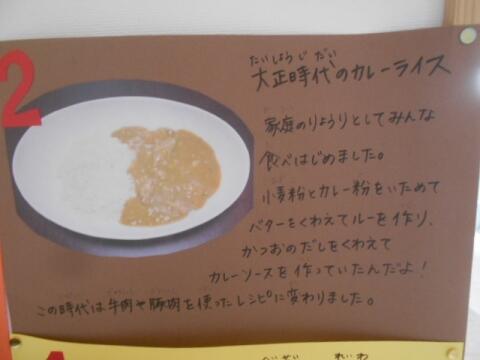 2
たいしょうじだい
大正時代のカレーライス
家庭のりょうりとしてみんな
食べはじめました。
小麦粉とカレー粉をいためて
バターをくわえてルーを作り、
かつおのだしをくわえて
カレーソースを作っていたんだよ！
この時代は牛肉や豚肉を使ったレシピに変わりました。